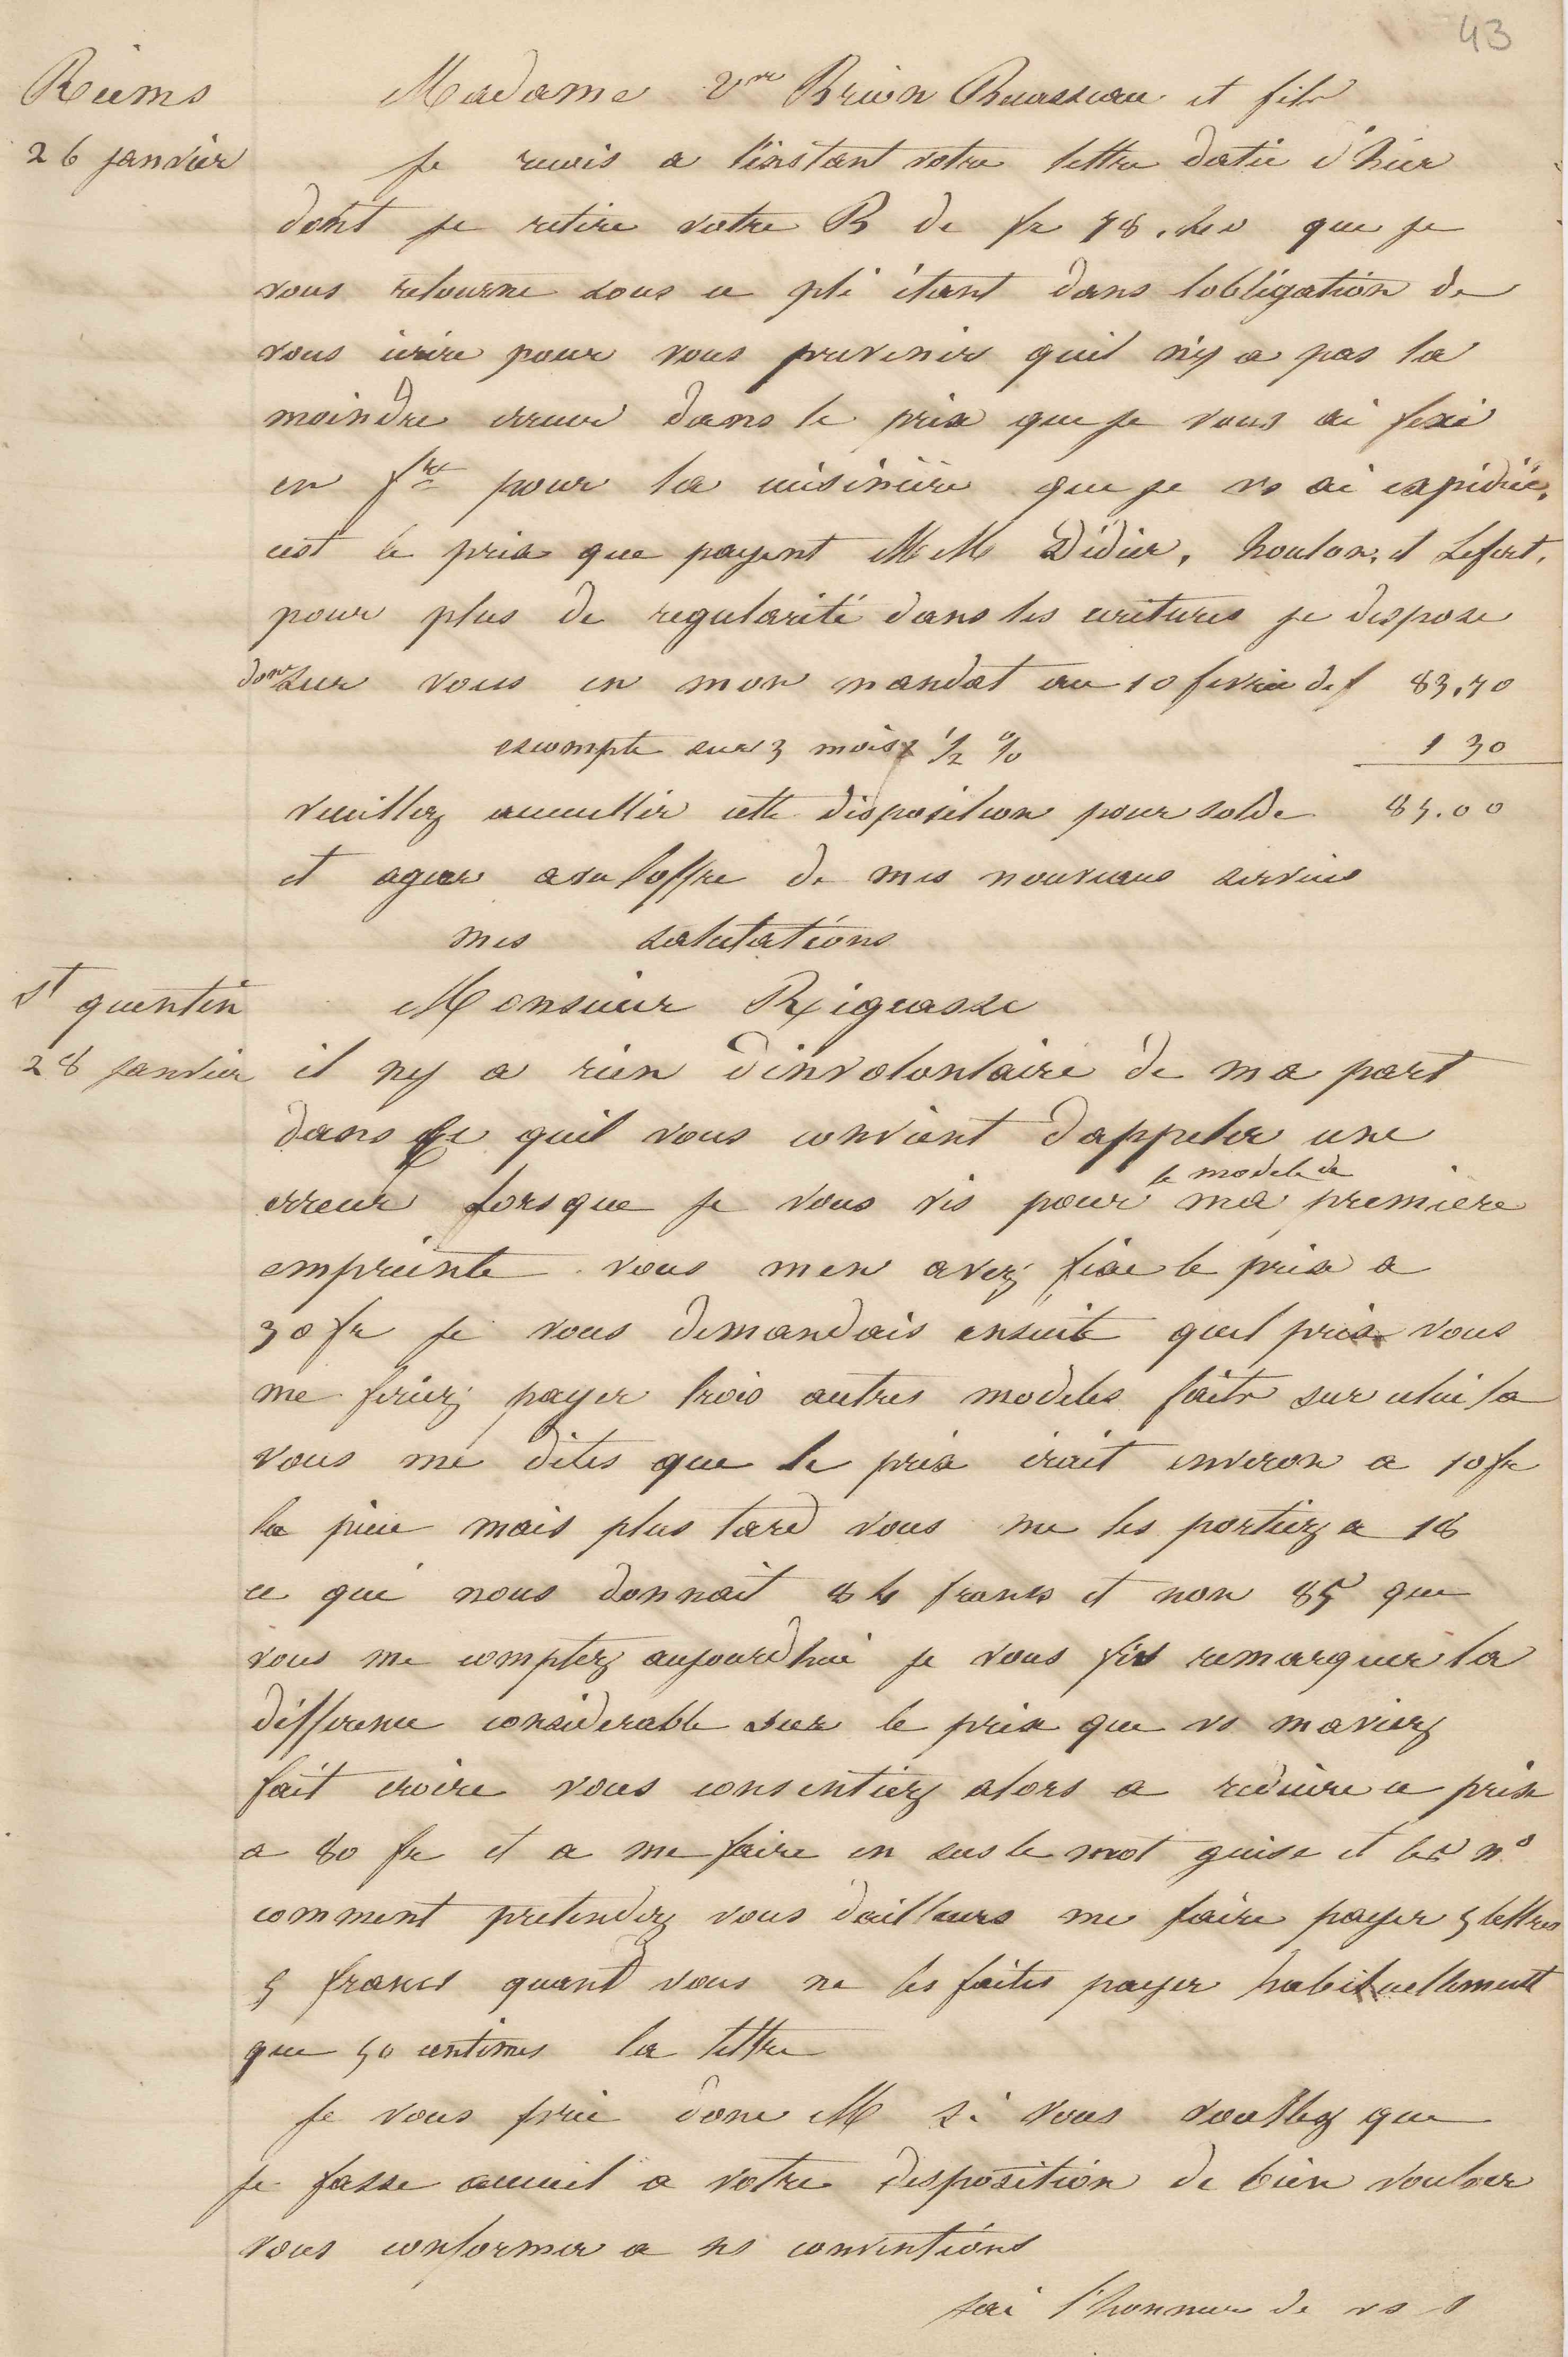 43
Reims
Madame Vve Brion Rousseau et fils
26 janvier
je recois a l'instant votre lettre datée d'hier
dont je retire votre B de fr 78.40 que je
vous retourne sous ce pli étant dans lobligation de
vous ecrire pour vous prevenir quil n'y a pas la
moindre erreur dans le prix que je vous ai fixé
en fre pour la cuisinière que je vs ai expédiée,
cest le prix que payent MM Didier, houlon, et Lefort.
pour plus de regularité dans les ecritures je dispose
donc sur vous en mon mandat au 10 fevrier de f 83,70
escompte sur 3 mois 1/2 % 1 30
veuillez accueillir cette disposition pour solde 85.00
et agreer avec loffre de mes nouveaux services
mes salutations
St quentin
Monsieur
28 janvier
il ny a rien dinvolontaire de ma part
dans ce quil vous convient dappeler une
erreur lorsque je vous vis pour le modele de ma première
empreinte vous men avez fixé le prix a
30 fr je vous demandais ensuite quel prix vous
me feriez payer trois autres modeles faits sur celui la
vous me dites que le prix irait environ a 10 fr
la piece mais plus tard vous me les portiez a 18
ce qui nous donnait 84 francs et non 85 que
vous me comptez aujourdhui je vous fis remarquer la
difference considerable sur le prix que vs maviez
fait croire vous consentiez alors a reduire ce prix
a 80 fr et a me faire en sus le mot guise et les nos
comment pretendez vous dailleurs me faire payer 5 lettres
5 francs quand vous ne les faites payer habituellement
que 50 centimes la lettre
je vous prie donc M si vous voullez que
je fasse accueil a votre disposition de bien vouloir
vous conformer a ns conventions
jai l'honneur de vs s